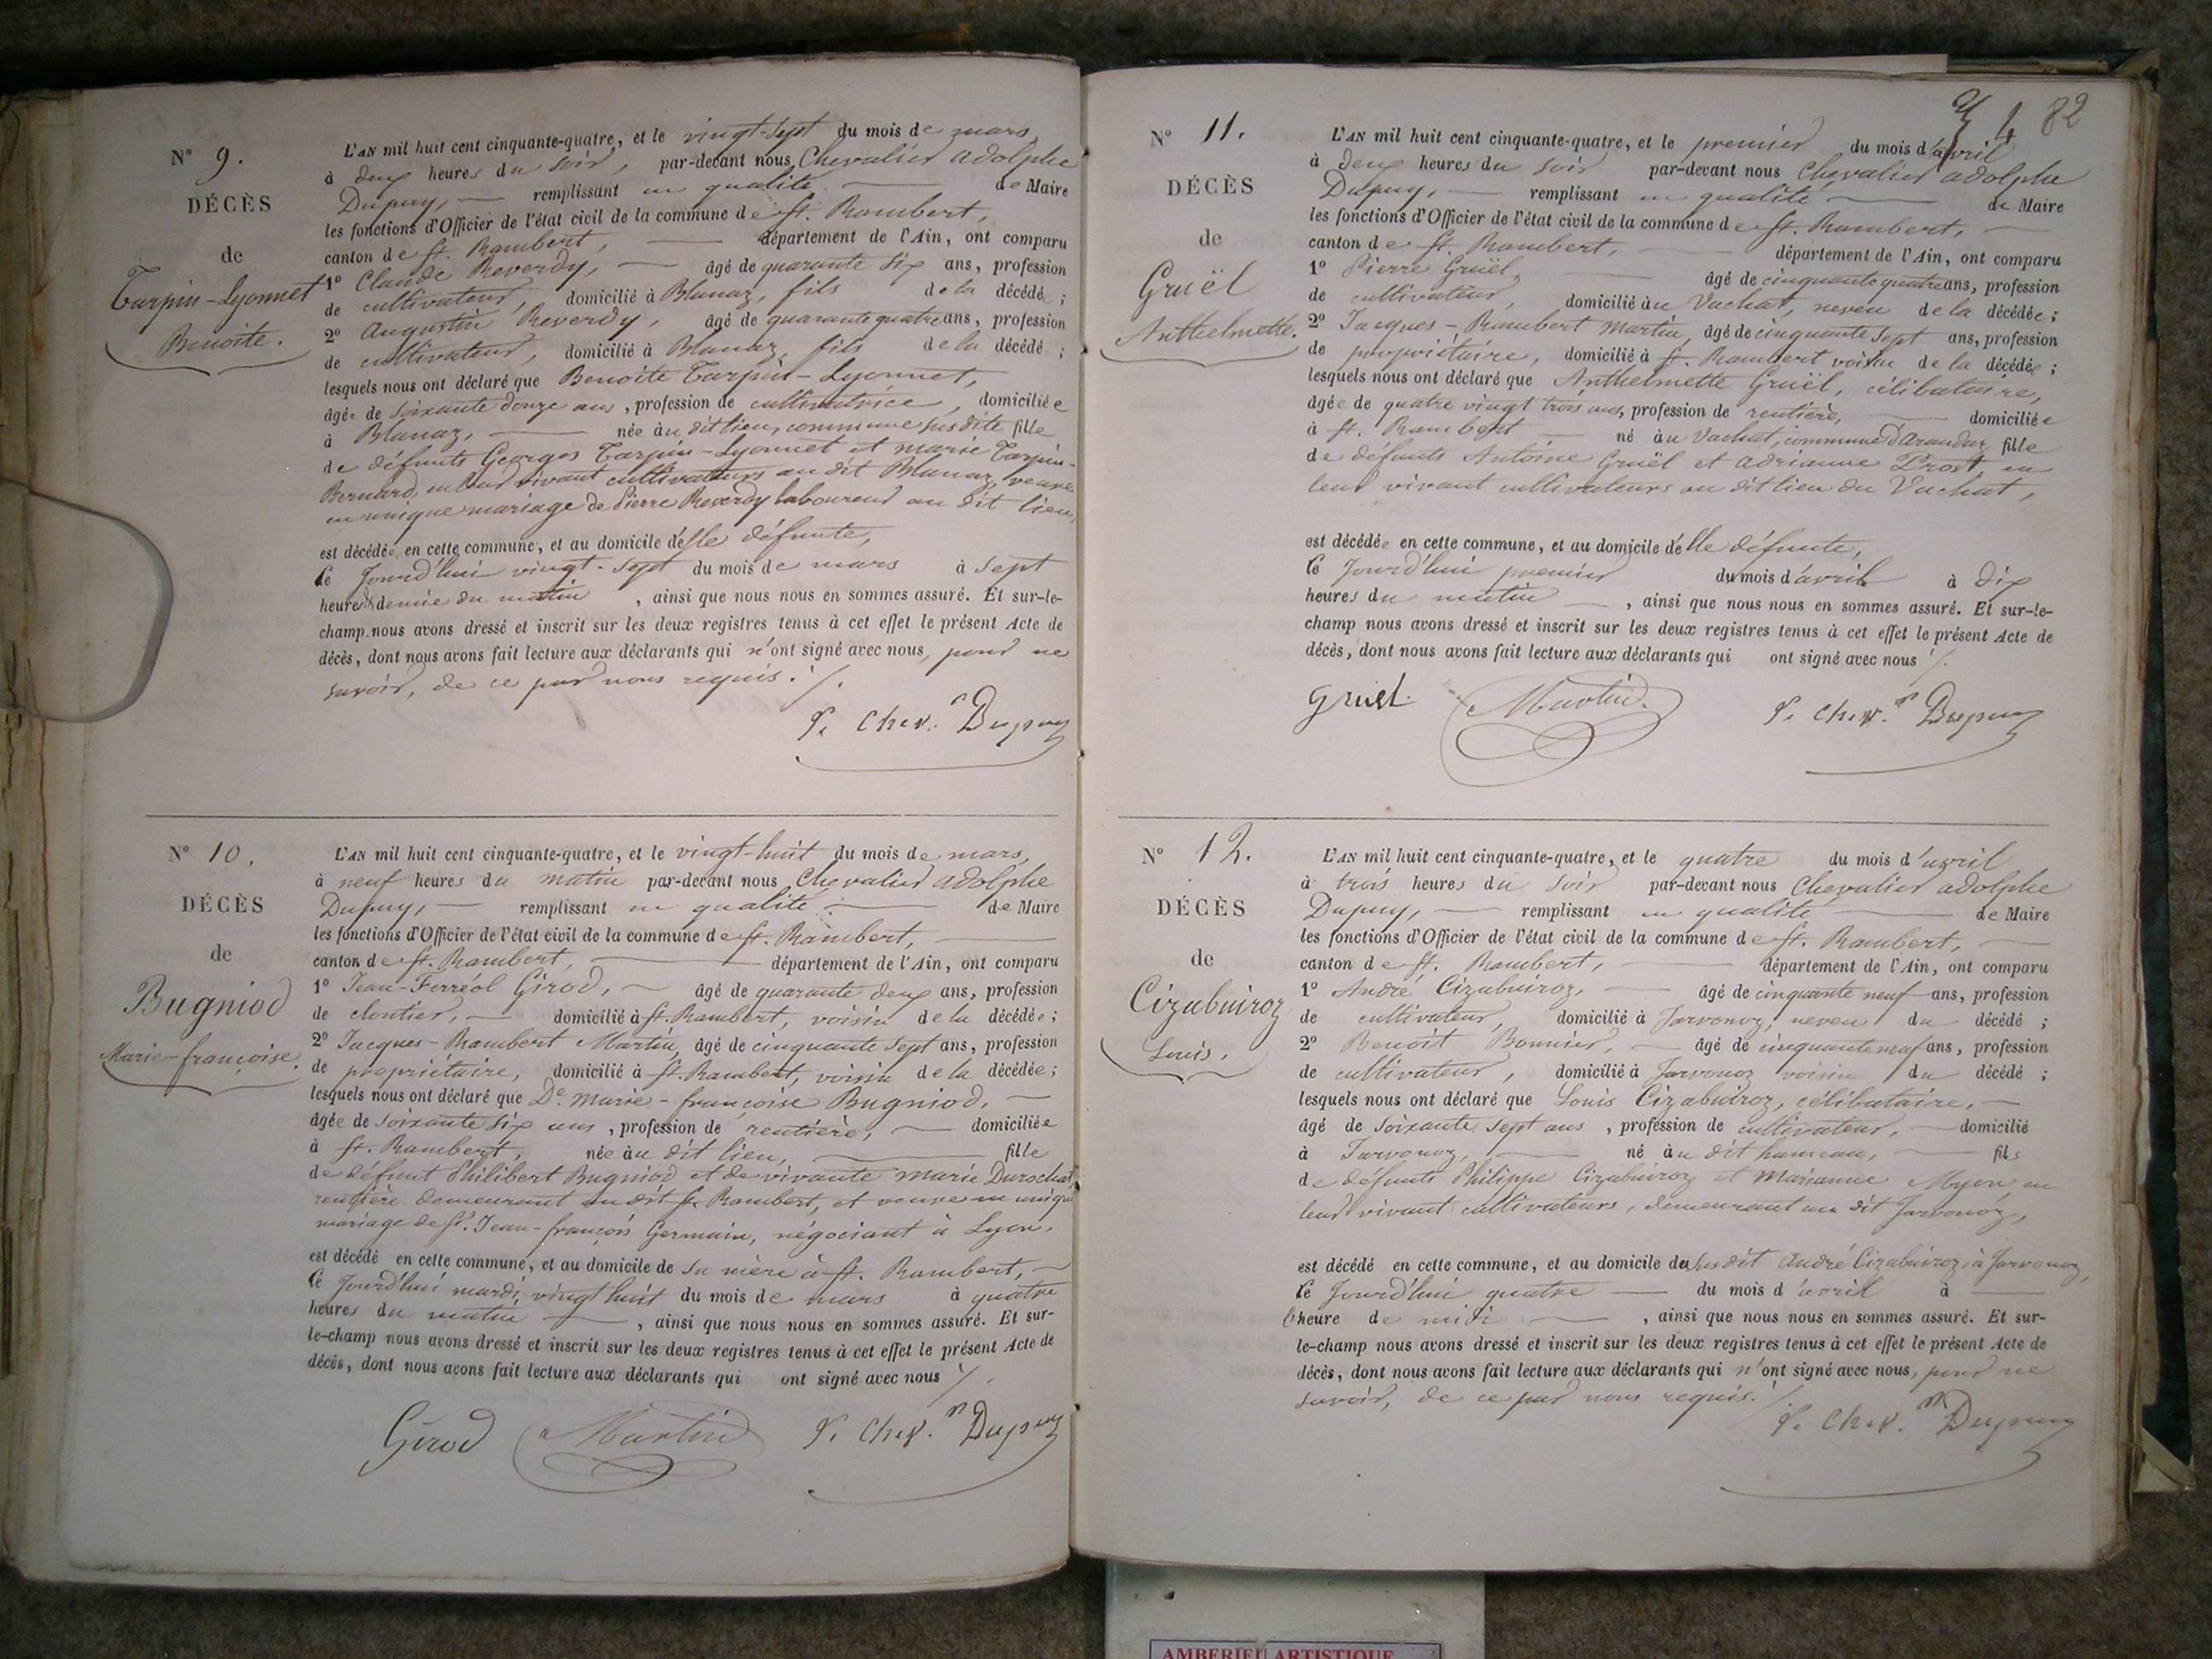 N° 9.
DÉCÈS
de
Tarpin-Lyonnet
Benoite.
L'AN mil huit cent cinquante-quatre, et le vingt-sept du mois de mars
à deux heures du soir, par-devant nous Chevalier Adolphe
Dupuy, remplissant en qualité de Maire
les fonctions d'Officier de l'état civil de la commune de St. Rambert,
canton de St. Rambert, département de l'Ain, ont comparu
1° Claude Reverdy, âgé de quarante six ans, profession
de cultivateur, domicilié à Blanaz, fils de la décédé ;
2° Augustin Reverdy, âgé de quarante quatre ans, profession
de cultivateur, domicilié à Blanaz, fils de la décédé ;
lesquels nous ont déclaré que Benoite Tarpin-Lyonnet,
âgée de soixante douze ans, profession de cultivatrice, domiciliée
à Blanaz, née au dit lieu, commune susdite fille
de défunts Georges Tarpin-Lyonnet et marie Tarpin-
Bernard, en leur vivant cultivateurs au dit Blanaz, veuve
en unique mariage de Pierre Reverdy laboureur au dit lieu,
est décédée en cette commune, et au domicile d'elle défunte,
le jourd'hui vingt-sept du mois de mars à sept
heures & demie du matin, ainsi que nous nous en sommes assuré. Et sur-le-
champ nous avons dressé et inscrit sur les deux registres tenus à cet effet le présent Acte de
décès, dont nous avons fait lecture aux déclarants qui n'ont signé avec nous, pour ne
savoir, de ce par nous requis. /.
Chev. Dupuy
N° 10.
DÉCÈS
de
Bugniod
Marie-françoise.
L'AN mil huit cent cinquante-quatre, et le vingt-huit du mois de mars,
à neuf heures du matin par-devant nous Chevalier Adolphe
Dupuy, remplissant en qualité de Maire
les fonctions d'Officier de l'état civil de la commune de St. Rambert,
canton de St. Rambert, département de l'Ain, ont comparu
1° Jean-Ferréol Girod, âgé de quarante deux ans, profession
de cloutier, domicilié à St. Rambert, voisin de la décédée ;
2° Jacques-Rambert Martin, âgé de cinquante sept ans, profession
de propriétaire, domicilié à St. Rambert, voisin de la décédée ;
lesquels nous ont déclaré que De. Marie-françoise Bugniod,
âgée de soixante six ans, profession de rentière, domiciliée
à St. Rambert, née au dit lieu, fille
de défunt Philibert Bugniod et de vivante Marie Durochat,
rentière demeurant au dit St. Rambert, et veuve en unique
mariage de Sr. Jean-françois Germain, négociant à Lyon,
est décédé en cette commune, et au domicile de sa mère à St. Rambert,
le jourd'hui mardi, vingt huit du mois de mars à quatre
heures du matin, ainsi que nous nous en sommes assuré. Et sur-
le-champ nous avons dressé et inscrit sur les deux registres tenus à cet effet le présent Acte de
décès, dont nous avons fait lecture aux déclarants qui ont signé avec nous /.
Girod Martin Chev. Dupuy
82
N° 11.
DÉCÈS
de
Gruël
Anthelmette.
L'AN mil huit cent cinquante-quatre, et le premier du mois d'avril
à deux heures du soir par-devant nous Chevalier Adolphe
Dupuy, remplissant en qualité de Maire
les fonctions d'Officier de l'état civil de la commune de St. Rambert,
canton de St. Rambert, département de l'Ain, ont comparu
1° Pierre Gruël, âgé de cinquante quatre ans, profession
de cultivateur, domicilié au Vachat, neveu de la décédée ;
2° Jacques-Rambert Martin, âgé de cinquante sept ans, profession
de propriétaire, domicilié à St. Rambert voisin de la décédée ;
lesquels nous ont déclaré que Anthelmette Gruël, célibataire,
âgée de quatre vingt trois ans, profession de rentière, domiciliée
à St. Rambert né au Vachat, commune d'Arandaz fille
de défunts Antoine Gruël et Adrianne Prost, en
leur vivant cultivateurs au dit lieu du Vachat,
est décédée en cette commune, et au domicile d'elle défunte,
le jourd'hui premier du mois d'avril à dix
heures du matin, ainsi que nous nous en sommes assuré. Et sur-le-
champ nous avons dressé et inscrit sur les deux registres tenus à cet effet le présent Acte de
décès, dont nous avons fait lecture aux déclarants qui ont signé avec nous /.
Gruel. Martin. Chev. Dupuy
N° 12.
DÉCÈS
de
Cizabuiroz
Louis.
L'AN mil huit cent cinquante-quatre, et le quatre du mois d'avril
à trois heures du soir par-devant nous Chevalier Adolphe
Dupuy, remplissant en qualité de Maire
les fonctions d'Officier de l'état civil de la commune de St. Rambert,
canton de St. Rambert, département de l'Ain, ont comparu
1° André Cizabuiroz, âgé de cinquante neuf ans, profession
de cultivateur, domicilié à Javornoz, neveu du décédé ;
2° Benoit Bonnier, âgé de cinquante neuf ans, profession
de cultivateur, domicilié à Javornoz voisin du décédé ;
lesquels nous ont déclaré que Louis Cizabuiroz, célibataire,
âgé de soixante sept ans, profession de cultivateur, domicilié
à Javornoz, né au dit hameau, fils
de défunts Philippe Cizabuiroz et Marianne Myon, en
leur vivant cultivateurs, demeurant au dit Javornoz,
est décédé en cette commune, et au domicile du susdit André Cizabuiroz, à Javornoz,
le jourd'hui quatre du mois d'avril à
l'heure de midi, ainsi que nous nous en sommes assuré. Et sur-
le-champ nous avons dressé et inscrit sur les deux registres tenus à cet effet le présent Acte de
décès, dont nous avons fait lecture aux déclarants qui n'ont signé avec nous, pour ne
savoir, de ce par nous requis. /.
Chev. Dupuy
AMBERIEU ARTISTIQUE